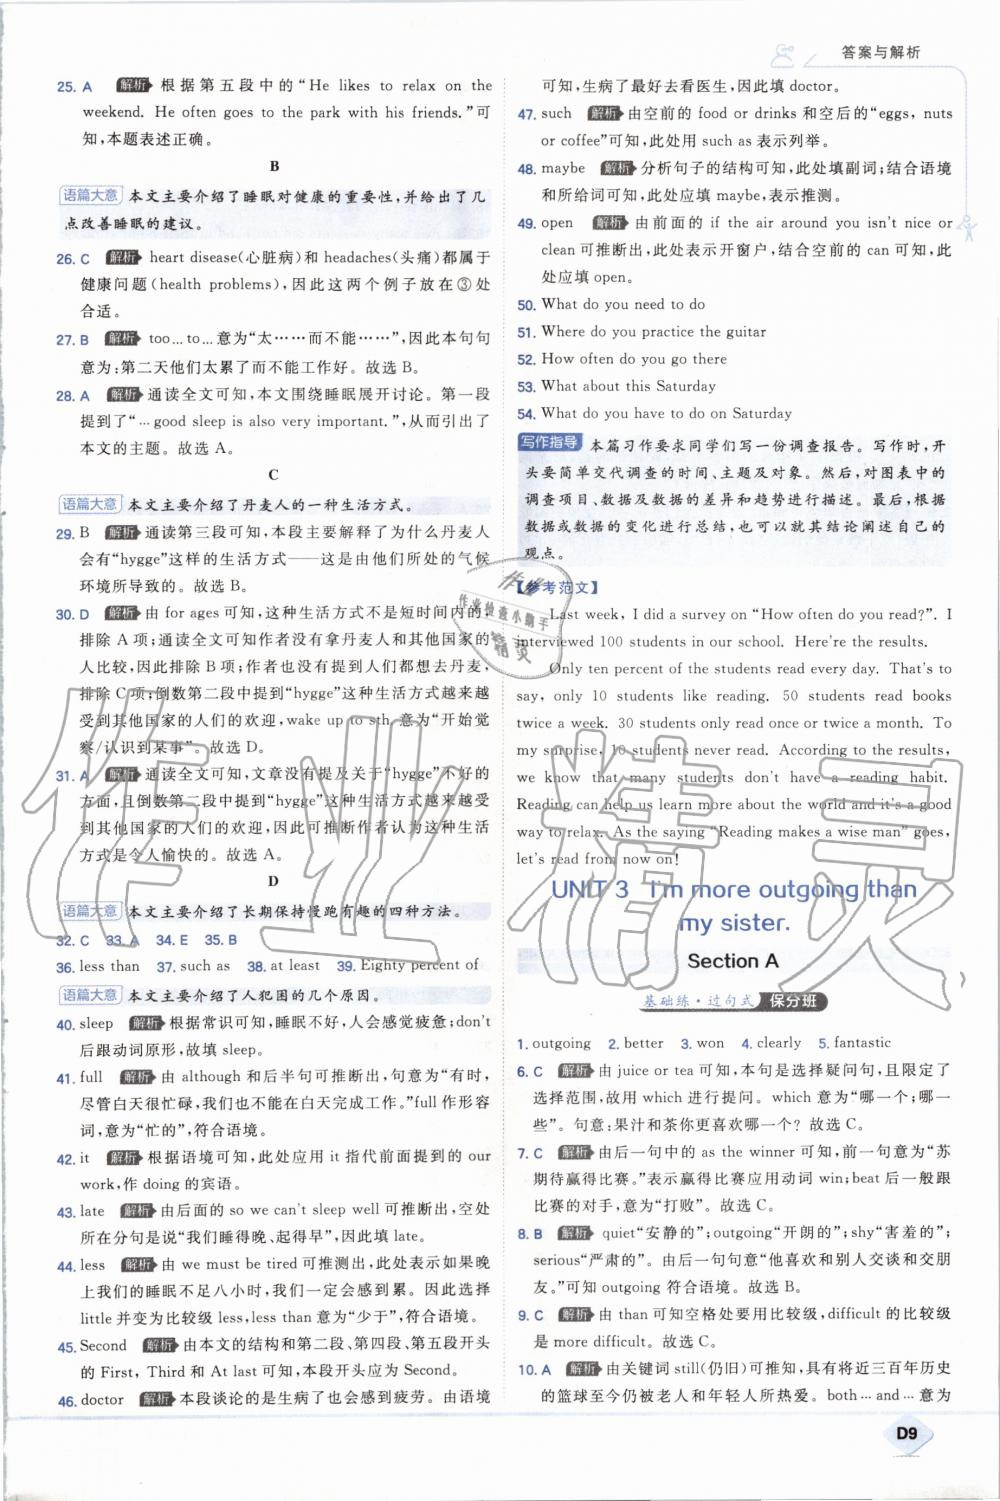 答案与解析
25. A 解析 根据第五段中的“He likes to relax on the
weekend. He often goes to the park with his friends.”可
知,本题表述正确。
B
语篇大意 本文主要介绍了睡眠对健康的重要性,并给出了几
点改善睡眠的建议。
26. C 解析 heart disease(心脏病)和 headaches(头痛)都属于
健康问题(health problems),因此这两个例子放在③处
合适。
27. B 解析 too…to…意为“太……而不能……”,因此本句句
意为:第二天他们太累了而不能工作好。故选 B。
28. A 解析 通读全文可知,本文围绕睡眠展开讨论。第一段
提到了“…good sleep is also very important.”,从而引出了
本文的主题。故选 A。
C
语篇大意 本文主要介绍了丹麦人的一种生活方式。
29. B 解析 通读第三段可知,本段主要解释了为什么丹麦人
会有“hygge”这样的生活方式——这是由他们所处的气候
环境所导致的。故选 B。
30. D 解析 由 for ages 可知,这种生活方式不是短时间内的,
排除 A 项;通读全文可知作者没有拿丹麦人和其他国家的
人比较,因此排除 B 项;作者也没有提到人们都想去丹麦,
排除 C 项;倒数第二段中提到“hygge”这种生活方式越来越
受到其他国家的人们的欢迎,wake up to sth. 意为“开始觉
察/认识到某事”。故选 D。
31. A 解析 通读全文可知,文章没有提及关于“hygge”不好的
方面,且倒数第二段中提到“hygge”这种生活方式越来越受
到其他国家的人们的欢迎,因此可推断作者认为这种生活
方式是令人愉快的。故选 A。
D
语篇大意 本文主要介绍了长期保持慢跑有趣的四种方法。
32. C 33. A 34. E 35. B
36. less than 37. such as 38. at least 39. Eighty percent of
语篇大意 本文主要介绍了人犯困的几个原因。
40. sleep 解析 根据常识可知,睡眠不好,人会感觉疲惫;don't
后跟动词原形,故填 sleep。
41. full 解析 由 although 和后半句可推断出,句意为“有时,
尽管白天很忙碌,我们也不能在白天完成工作。”full 作形容
词,意为“忙的”,符合语境。
42. it 解析 根据语境可知,此处应用 it 指代前面提到的 our
work,作 doing 的宾语。
43. late 解析 由后面的 so we can't sleep well 可推断出,空处
所在分句是说“我们睡得晚、起得早”,因此填 late。
44. less 解析 由 we must be tired 可推测出,此处表示如果晚
上我们的睡眠不足八小时,我们一定会感到累。因此选择
little 并变为比较级 less,less than 意为“少于”,符合语境。
45. Second 解析 由本文的结构和第二段、第四段、第五段开头
的 First, Third 和 At last 可知,本段开头应为 Second。
46. doctor 解析 本段谈论的是生病了也会感到疲劳。由语境
可知,生病了最好去看医生,因此填 doctor。
47. such 解析 由空前的 food or drinks 和空后的“eggs, nuts
or coffee”可知,此处用 such as 表示列举。
48. maybe 解析 分析句子的结构可知,此处填副词;结合语境
和所给词可知,此处应填 maybe,表示推测。
49. open 解析 由前面的 if the air around you isn't nice or
clean 可推断出,此处表示开窗户,结合空前的 can 可知,此
处应填 open。
50. What do you need to do
51. Where do you practice the guitar
52. How often do you go there
53. What about this Saturday
54. What do you have to do on Saturday
写作指导 本篇习作要求同学们写一份调查报告。写作时,开
头要简单交代调查的时间、主题及对象。然后,对图表中的
调查项目、数据及数据的差异和趋势进行描述。最后,根据
数据或数据的变化进行总结,也可以就其结论阐述自己的
观点。
【参考范文】
Last week, I did a survey on “How often do you read?”. I
interviewed 100 students in our school. Here're the results.
Only ten percent of the students read every day. That's to
say, only 10 students like reading. 50 students read books
twice a week. 30 students only read once or twice a month. To
my surprise, 10 students never read. According to the results,
we know that many students don't have a reading habit.
Reading can help us learn more about the world and it's a good
way to relax. As the saying “Reading makes a wise man” goes,
let's read from now on!
UNIT 3 I'm more outgoing than
my sister.
Section A
基础练·过句式 保分班
1. outgoing 2. better 3. won 4. clearly 5. fantastic
6. C 解析 由 juice or tea 可知,本句是选择疑问句,且限定了
选择范围,故用 which 进行提问。which 意为“哪一个;哪一
些”。句意:果汁和茶你更喜欢哪一个? 故选 C。
7. C 解析 由后一句中的 as the winner 可知,前一句意为“苏
期待赢得比赛。”表示赢得比赛应用动词 win;beat 后一般跟
比赛的对手,意为“打败”。故选 C。
8. B 解析 quiet“安静的”;outgoing“开朗的”;shy“害羞的”;
serious“严肃的”。由后一句句意“他喜欢和别人交谈和交朋
友。”可知 outgoing 符合语境。故选 B。
9. C 解析 由 than 可知空格处要用比较级,difficult 的比较级
是 more difficult。故选 C。
10. A 解析 由关键词 still(仍旧)可推知,具有将近三百年历史
的篮球至今仍被老人和年轻人所热爱。both…and…意为
D9
作业精灵
作业
作业检查小帮手
精灵